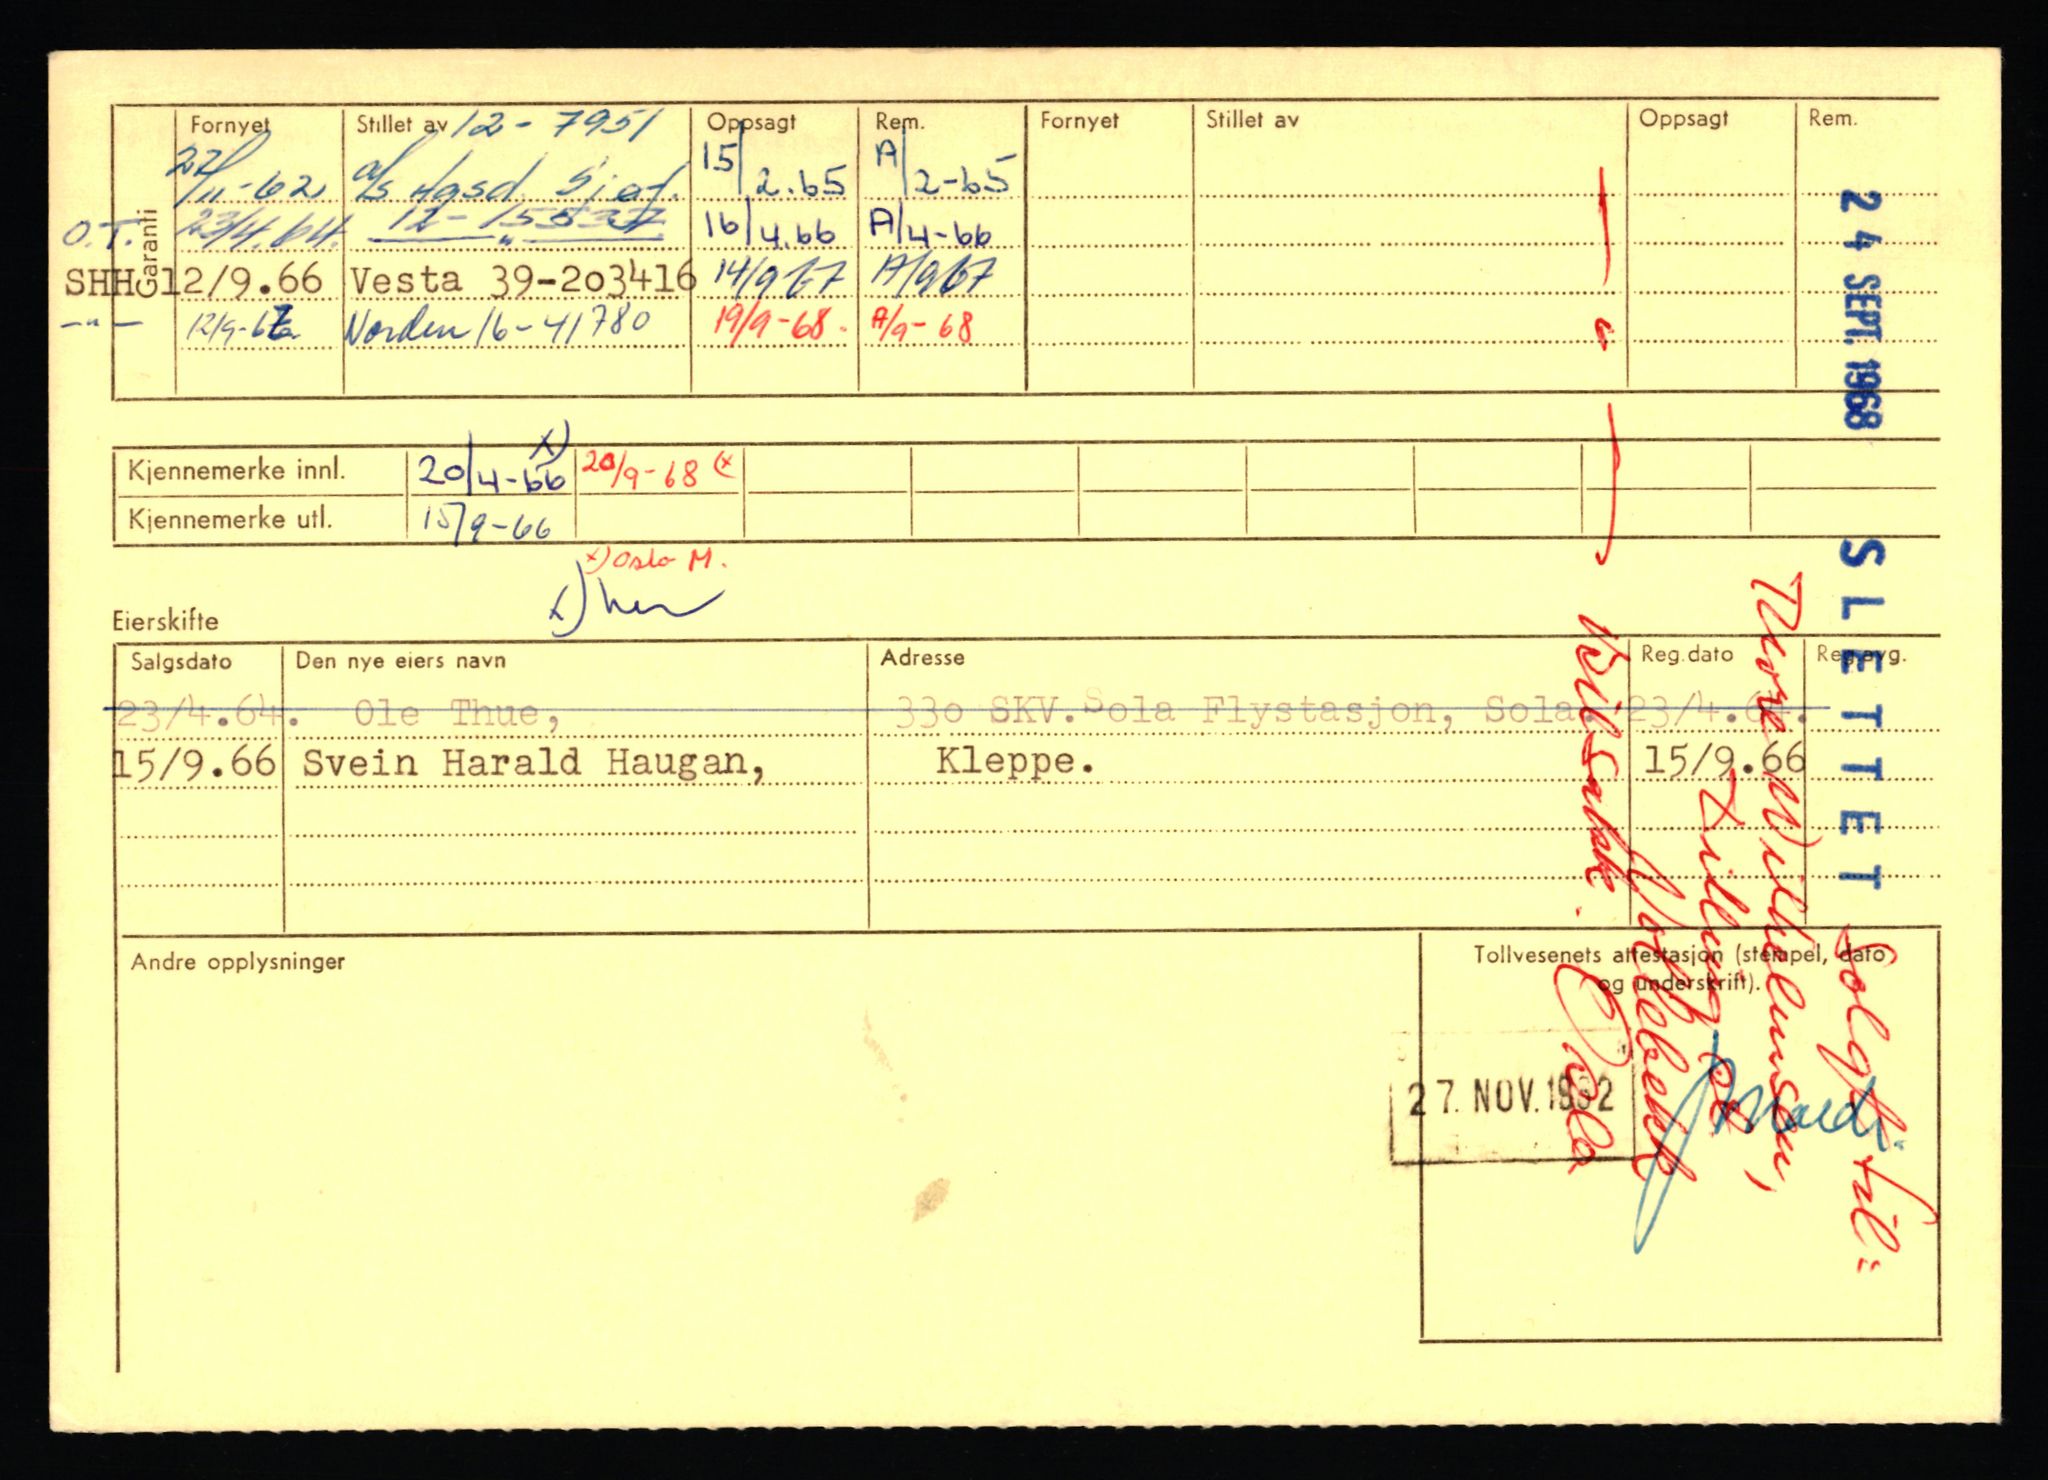 Fornyet Stillet av 12 - 7951 Oppsagt Rem. Fornyet Stillet av Oppsagt Rem.
Garanti
22/11-62 a/s 15/2.65 A/2-65
O.T. 23/4.64. 12-15537 16/4.66 A/4-66
SHH 12/9.66 Vesta 39-203416 14/9 67 A/9 67
-"- 12/9-67 Norden 16-41780 19/9-68. A/9-68
Kjennemerke innl. 20/4-66 x) 20/9-68 (x
Kjennemerke utl. 15/9-66
x) Oslo M.
x)
Eierskifte
Salgsdato Den nye eiers navn Adresse Reg.dato Reg.avg.
23/4.64. Ole Thue, 330 SKV. Sola Flystasjon, Sola. 23/4.64.
15/9.66 Svein Harald Haugan, Kleppe. 15/9.66
Andre opplysninger
Tollvesenets attestasjon (stempel, dato
og underskrift).
27. NOV. 1962
24 SEPT. 1968 SLETTET
Solgt til:
Tore Wilhelmsen,
Bilsakk.